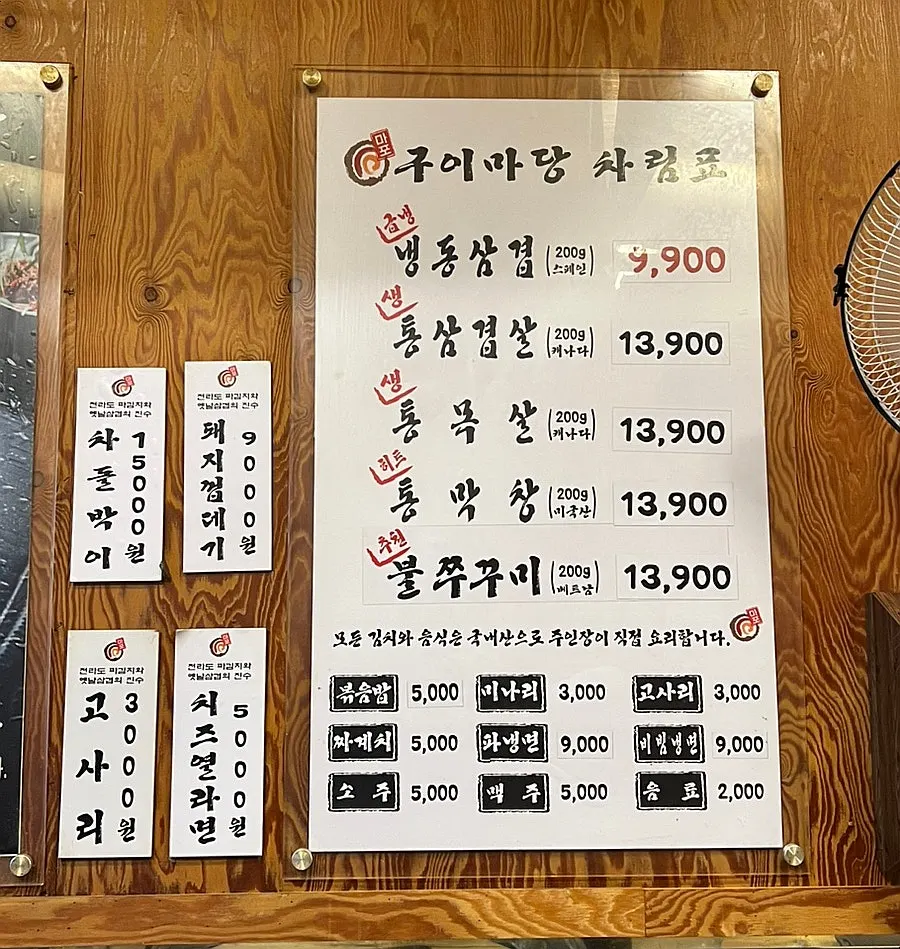 마포
구이마당 차림표
급냉
냉동삼겹 (200g 스페인) 9,900
생
통삼겹살 (200g 캐나다) 13,900
생
통목살 (200g 캐나다) 13,900
히트
통막창 (200g 미국산) 13,900
추천
불쭈꾸미 (200g 베트남) 13,900
모든 김치와 음식은 국내산으로 주인장이 직접 요리합니다.
마포
볶음밥 5,000 미나리 3,000 고사리 3,000
짜계치 5,000 파냉면 9,000 비빔냉면 9,000
소주 5,000 맥주 5,000 음료 2,000
전라도 파김치와
옛날삼겹의 진수
차돌박이 15000원
전라도 파김치와
옛날삼겹의 진수
돼지껍데기 9000원
전라도 파김치와
옛날삼겹의 진수
고사리 3000원
전라도 파김치와
옛날삼겹의 진수
치즈열라면 5000원